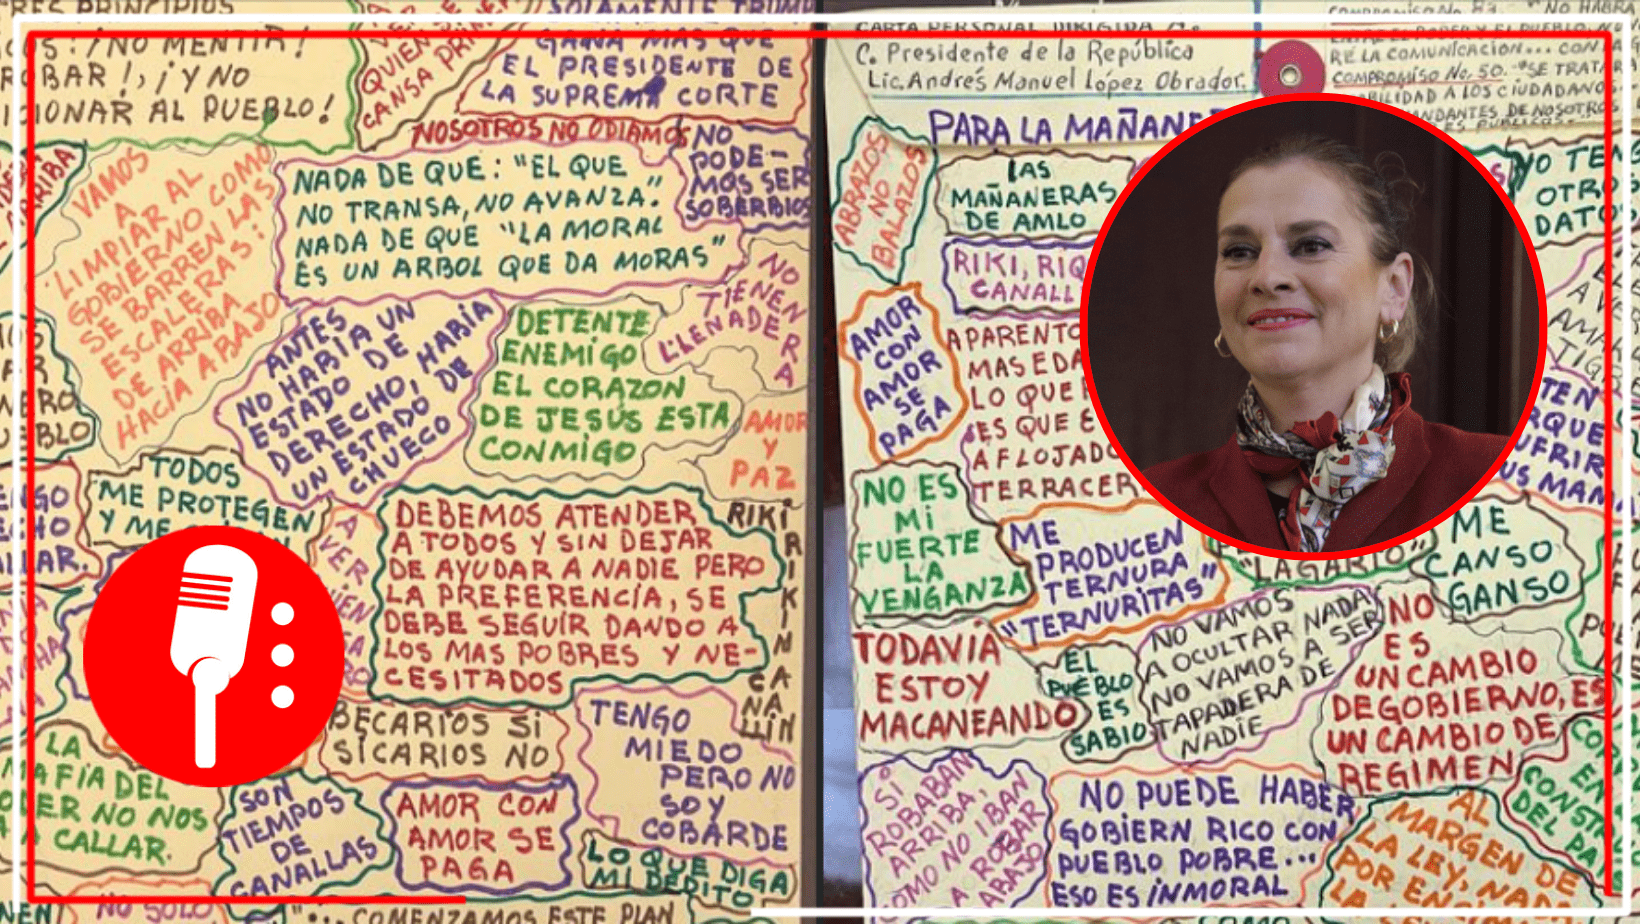 RES PRINCIPIOS
¡NO MENTIR!
ROBAR!, ¡Y NO
ICIONAR AL PUEBLO!
QUIEN
CANSA
SOLAMENTE TRUMP
GANA MAS QUE
EL PRESIDENTE DE
LA SUPREMA CORTE
NOSOTROS NO ODIAMOS
NO
PODE-
MOS SER
SOBERBIOS
ARRIBA
VAMOS
A
LIMPIAR AL
GOBIERNO COMO
SE BARREN LAS
ESCALERAS:
DE ARRIBA
HACIA ABAJO
NADA DE QUE: "EL QUE
NO TRANSA, NO AVANZA."
NADA DE QUE "LA MORAL
ES UN ARBOL QUE DA MORAS"
NO
TIENEN
LLENADERA
ANTES
NO HABIA UN
ESTADO DE
DERECHO, HABÍA
UN ESTADO DE
CHUECO
DETENTE
ENEMIGO
EL CORAZON
DE JESÚS ESTA
CONMIGO
AMOR
Y
PAZ
TODOS
ME PROTEGEN
Y ME
DEBEMOS ATENDER
A TODOS Y SIN DEJAR
DE AYUDAR A NADIE PERO
LA PREFERENCIA, SE
DEBE SEGUIR DANDO A
LOS MAS POBRES Y NE-
CESITADOS
RIKI
RIKIN
CA
NA
LLIN
A
VER
BECARIOS SI
SICARIOS NO
TENGO
MIEDO
PERO NO
SOY
COBARDE
LA
MAFIA DEL
PODER NO NOS
A CALLAR.
SON
TIEMPOS
DE
CANALLAS
AMOR CON
AMOR SE
PAGA
LO QUE DIGA
MI DEDITO
NO SOLO
"... COMENZAMOS ESTE PLAN
CARTA PERSONAL DIRIGIDA Al
C. Presidente de la República
Lic. Andrés Manuel López Obrador.
COMPROMISO No. 83. "NO HABRA
RÉ LA COMUNICACION... CON LA
COMPROMISO No. 50. "SE TRATARA
ABILIDAD A LOS CIUDADANOS
MANDANTES DE NOSOTROS
PARA LA MAÑANE
ABRAZOS
NO
BALAZOS
LAS
MAÑANERAS
DE AMLO
YO TENG
OTROS
DATOS
RIKI, RIQ
CANALL
AMOR
CON
AMOR
SE
PAGA
APARENTO
MAS EDA
LO QUE
ES QUE E
AFLOJADO
TERRACER
NO ES
MI
FUERTE
LA
VENGANZA
ME
PRODUCEN
TERNURA
"TERNURITAS"
"LAGARTO"
ME
CANSO
GANSO
TODAVÍA
ESTOY
MACANEANDO
EL
PUEBLO
ES
SABIO
NO VAMOS
A OCULTAR NADA
NO VAMOS A SER
TAPADERA DE
NADIE
NO
ES
UN CAMBIO
DE GOBIERNO, ES
UN CAMBIO DE
REGIMEN
SI
ROBABAN
ARRIBA,
COMO NO IBAN
A ROBAR
ABAJO
NO PUEDE HABER
GOBIERN RICO CON
PUEBLO POBRE...
ESO ES INMORAL
AL
MARGEN DE
LA LEY, NADA
POR ENCI